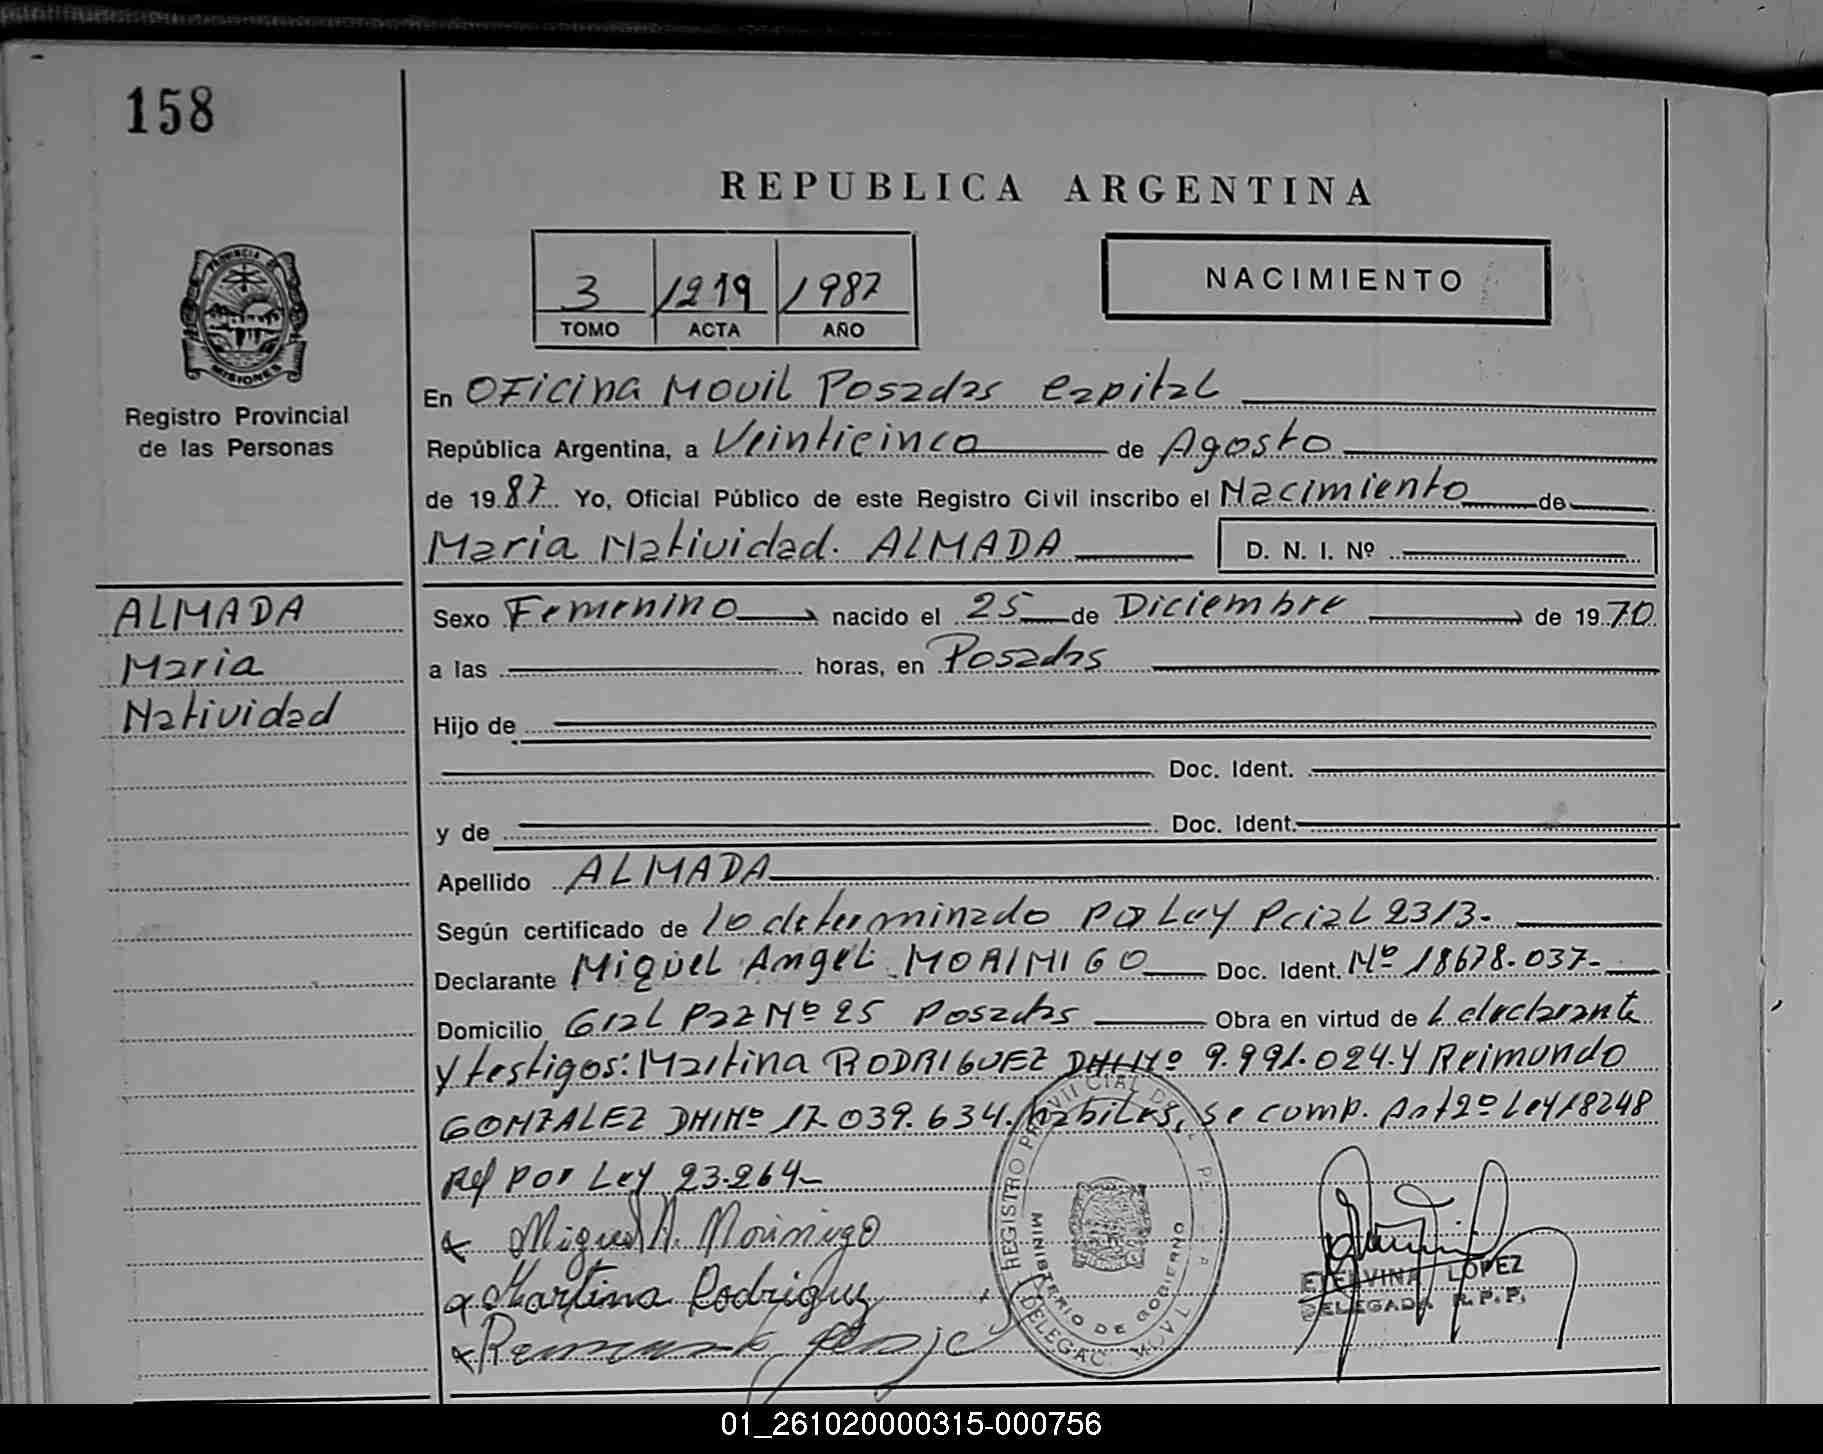 158
REPUBLICA ARGENTINA
3 1219 1987
TOMO ACTA AÑO
NACIMIENTO
PROVINCIA DE
MISIONES
Registro Provincial
de las Personas
En Oficina Movil Posadas Capital
República Argentina, a Veinticinco de Agosto
de 1987 Yo, Oficial Público de este Registro Civil inscribo el Nacimiento de
Maria Natividad. ALMADA D. N. I. Nº
ALMADA
Maria
Natividad
Sexo Femenino nacido el 25 de Diciembre de 1970
a las horas, en Posadas
Hijo de
Doc. Ident.
y de Doc. Ident.
Apellido ALMADA
Según certificado de lo determinado por Ley Pcial 2313-
Declarante Miguel Angel MORINIGO Doc. Ident. Nº 18678.037-
Domicilio Gral Paz Nº 25 Posadas Obra en virtud de l declarante
y testigos: Martina RODRIGUEZ DNI Nº 9.991.024. y Reimundo
GONZALEZ DNI Nº 17.039.634. habiles, se comp. Art 2º Ley 18248
Ref por Ley 23.264-
Miguel A. Morinigo
Martina Rodriguez
REGISTRO PROVINCIAL DE
MINISTERIO DE GOBIERNO
DELEGAC. MOVIL
ETELVINA LOPEZ
DELEGADA R.P.P.
01_261020000315-000756